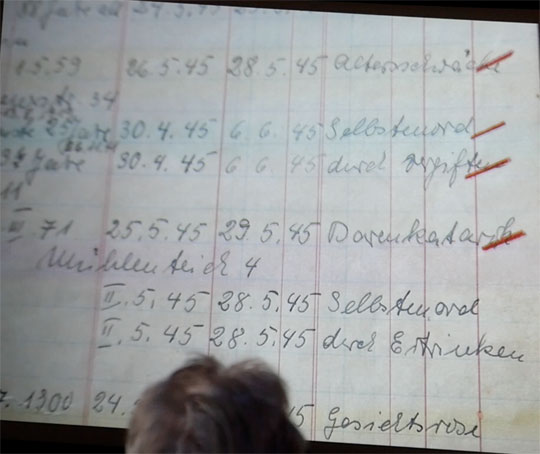 24.5.45
15.59 26.5.45 28.5.45 Altersschwäche
34
25 Jahre 30.4.45 6.6.45 Selbstmord
32 Jahre 30.4.45 6.6.45 durch Vergiften
11
III 71 25.5.45 29.5.45 Darmkatarrh
Mühlenteich 4
II.5.45 28.5.45 Selbstmord
II.5.45 28.5.45 durch Ertrinken
7.1900 24. 45 Gesichtsrose